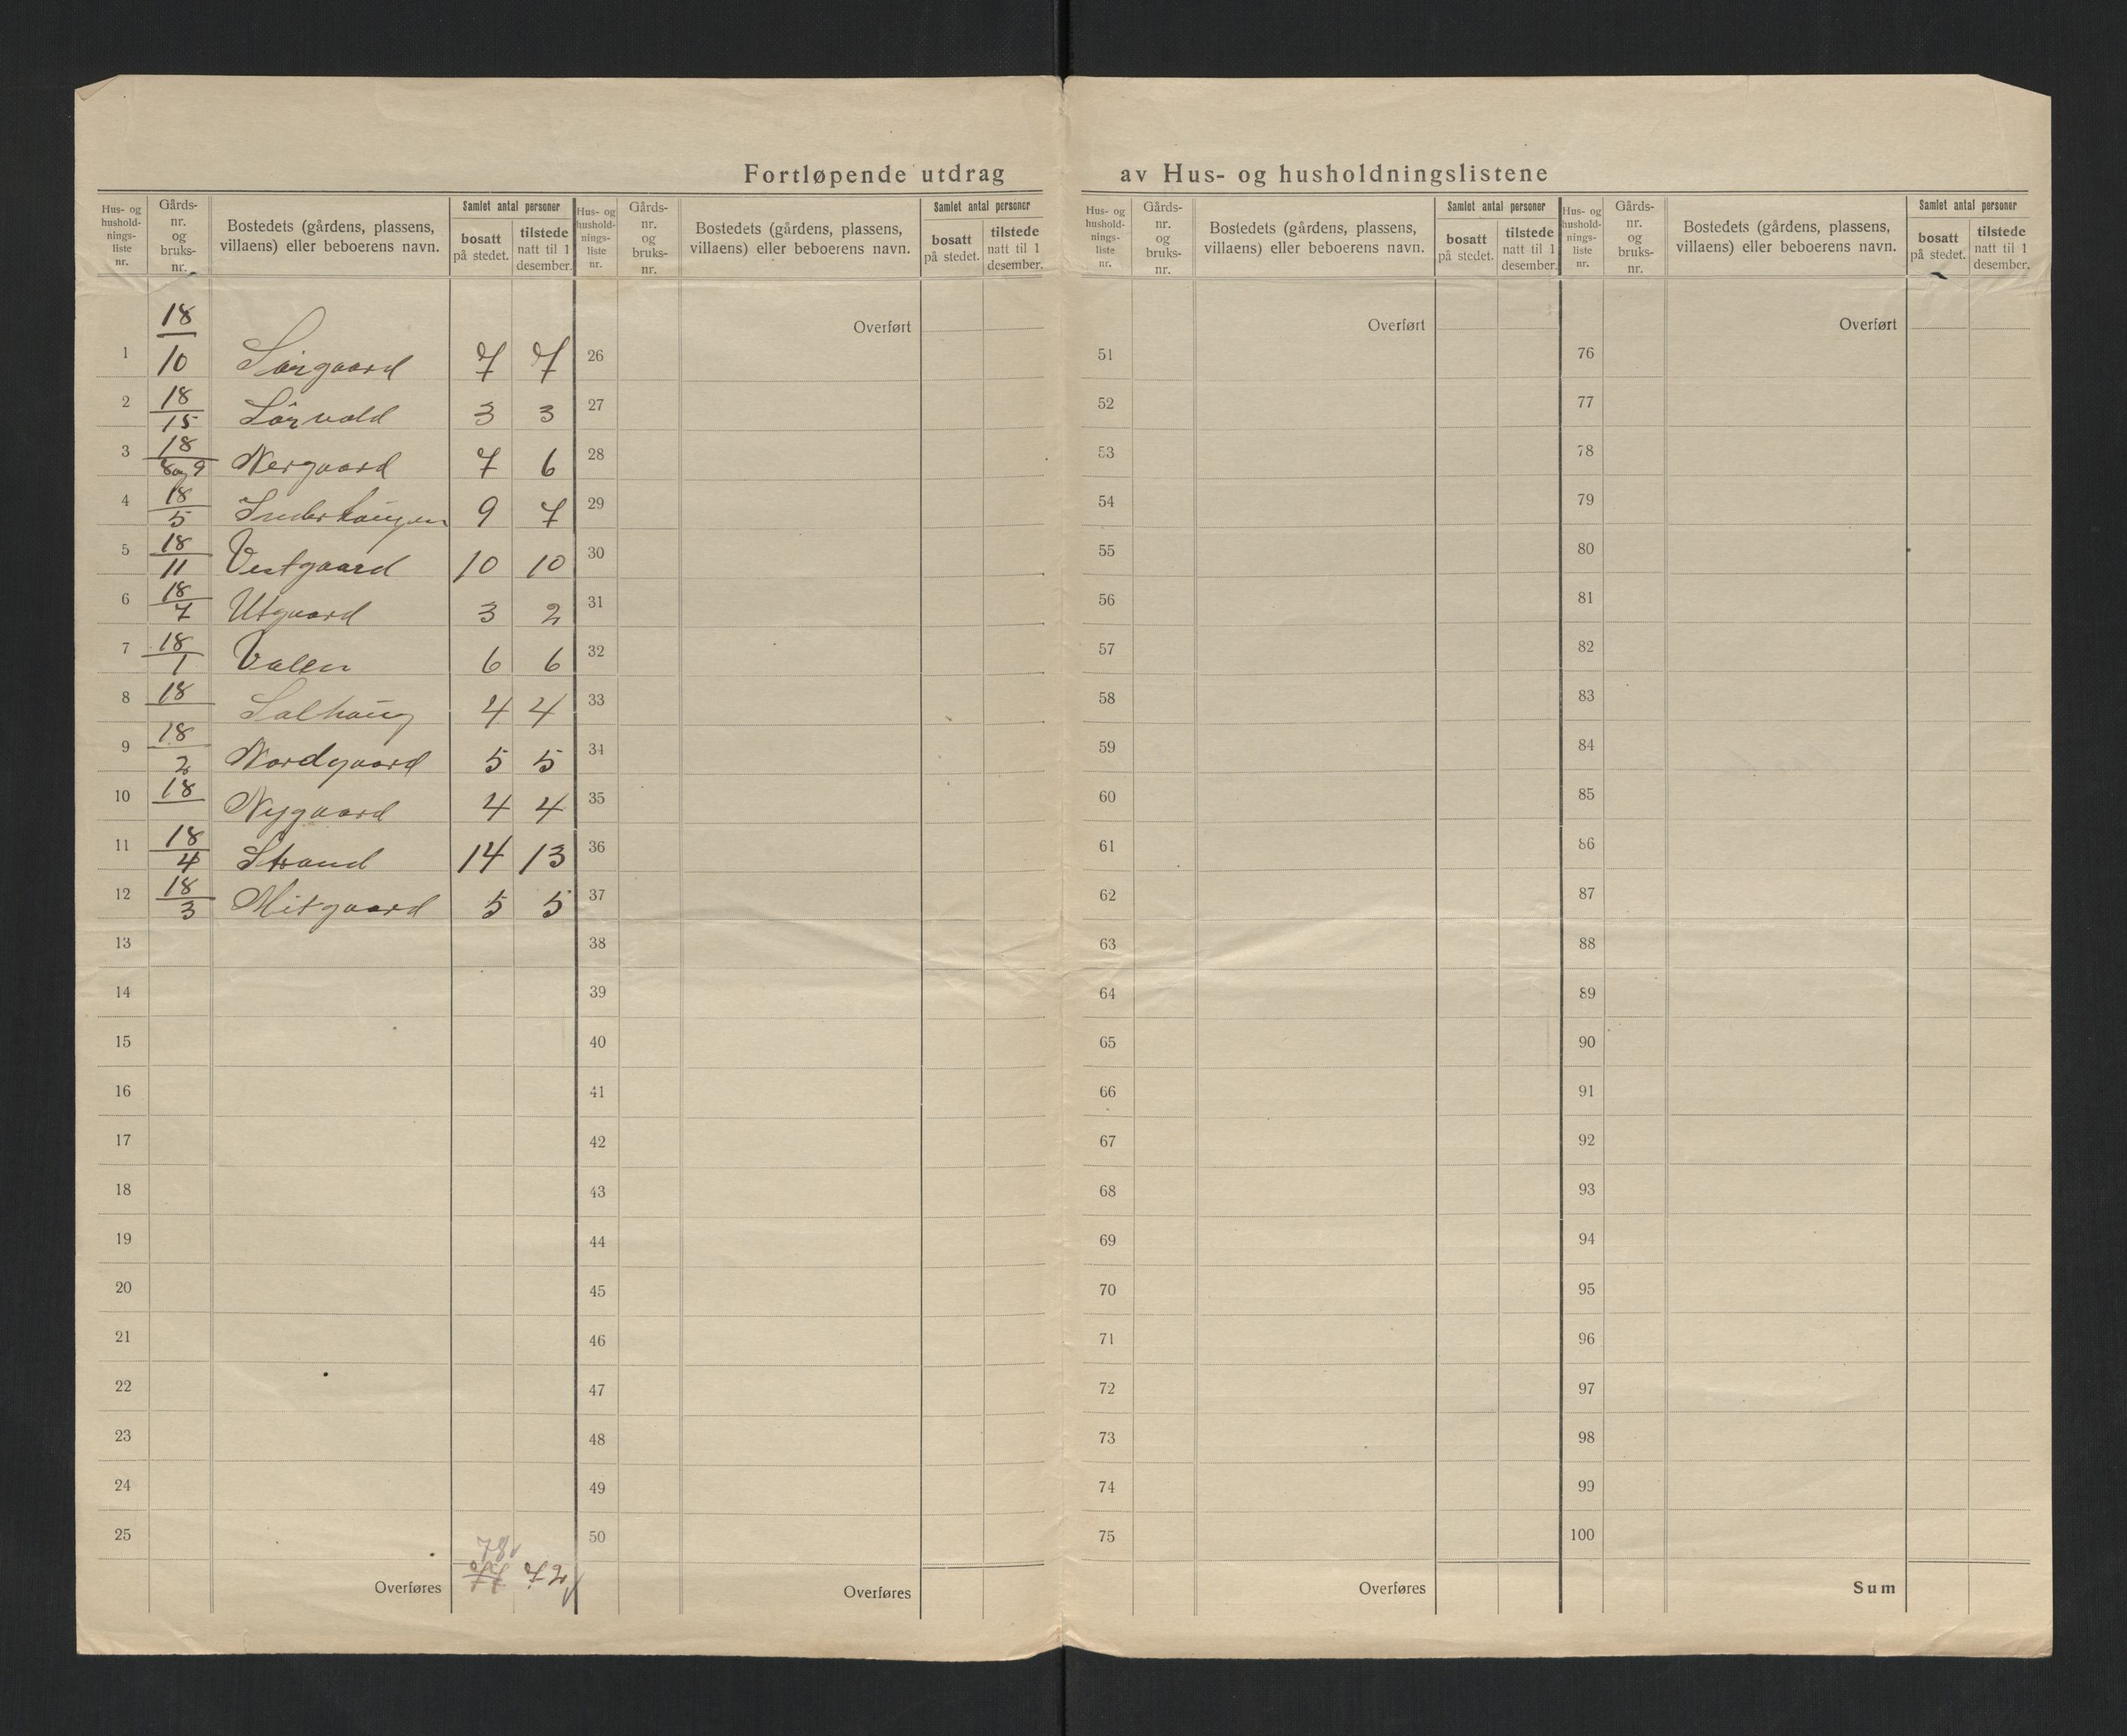 Fortløpende utdrag av Hus- og husholdningslistene
Hus- og hushold-nings-liste nr. Gårds-nr. og bruks-nr. Bostedets (gårdens, plassens, villaens) eller beboerens navn. Samlet antal personer bosatt på stedet. tilstede natt til 1 desember.
1 18/10 Sörgaard 7 7
2 18/15 Sörvold 3 3
3 18/8og9 Nergaard 7 6
4 18/5 Inderhaugen 9 7
5 18/11 Vestgaard 10 10
6 18/7 Utgaard 3 2
7 18/1 Valen 6 6
8 18 Solhaug 4 4
9 18/2 Nordgaard 5 5
10 18 Nygaard 4 4
11 18/4 Strand 14 13
12 18/3 Mitgaard 5 5
13
14
15
16
17
18
19
20
21
22
23
24
25
78
Overføres 77 72
Hus- og hushold-nings-liste nr. Gårds-nr. og bruks-nr. Bostedets (gårdens, plassens, villaens) eller beboerens navn. Samlet antal personer bosatt på stedet. tilstede natt til 1 desember.
Overført
26
27
28
29
30
31
32
33
34
35
36
37
38
39
40
41
42
43
44
45
46
47
48
49
50
Overføres
Hus- og hushold-nings-liste nr. Gårds-nr. og bruks-nr. Bostedets (gårdens, plassens, villaens) eller beboerens navn. Samlet antal personer bosatt på stedet. tilstede natt til 1 desember.
Overført
51
52
53
54
55
56
57
58
59
60
61
62
63
64
65
66
67
68
69
70
71
72
73
74
75
Overføres
Hus- og hushold-nings-liste nr. Gårds-nr. og bruks-nr. Bostedets (gårdens, plassens, villaens) eller beboerens navn. Samlet antal personer bosatt på stedet. tilstede natt til 1 desember.
Overført
76
77
78
79
80
81
82
83
84
85
86
87
88
89
90
91
92
93
94
95
96
97
98
99
100
Sum